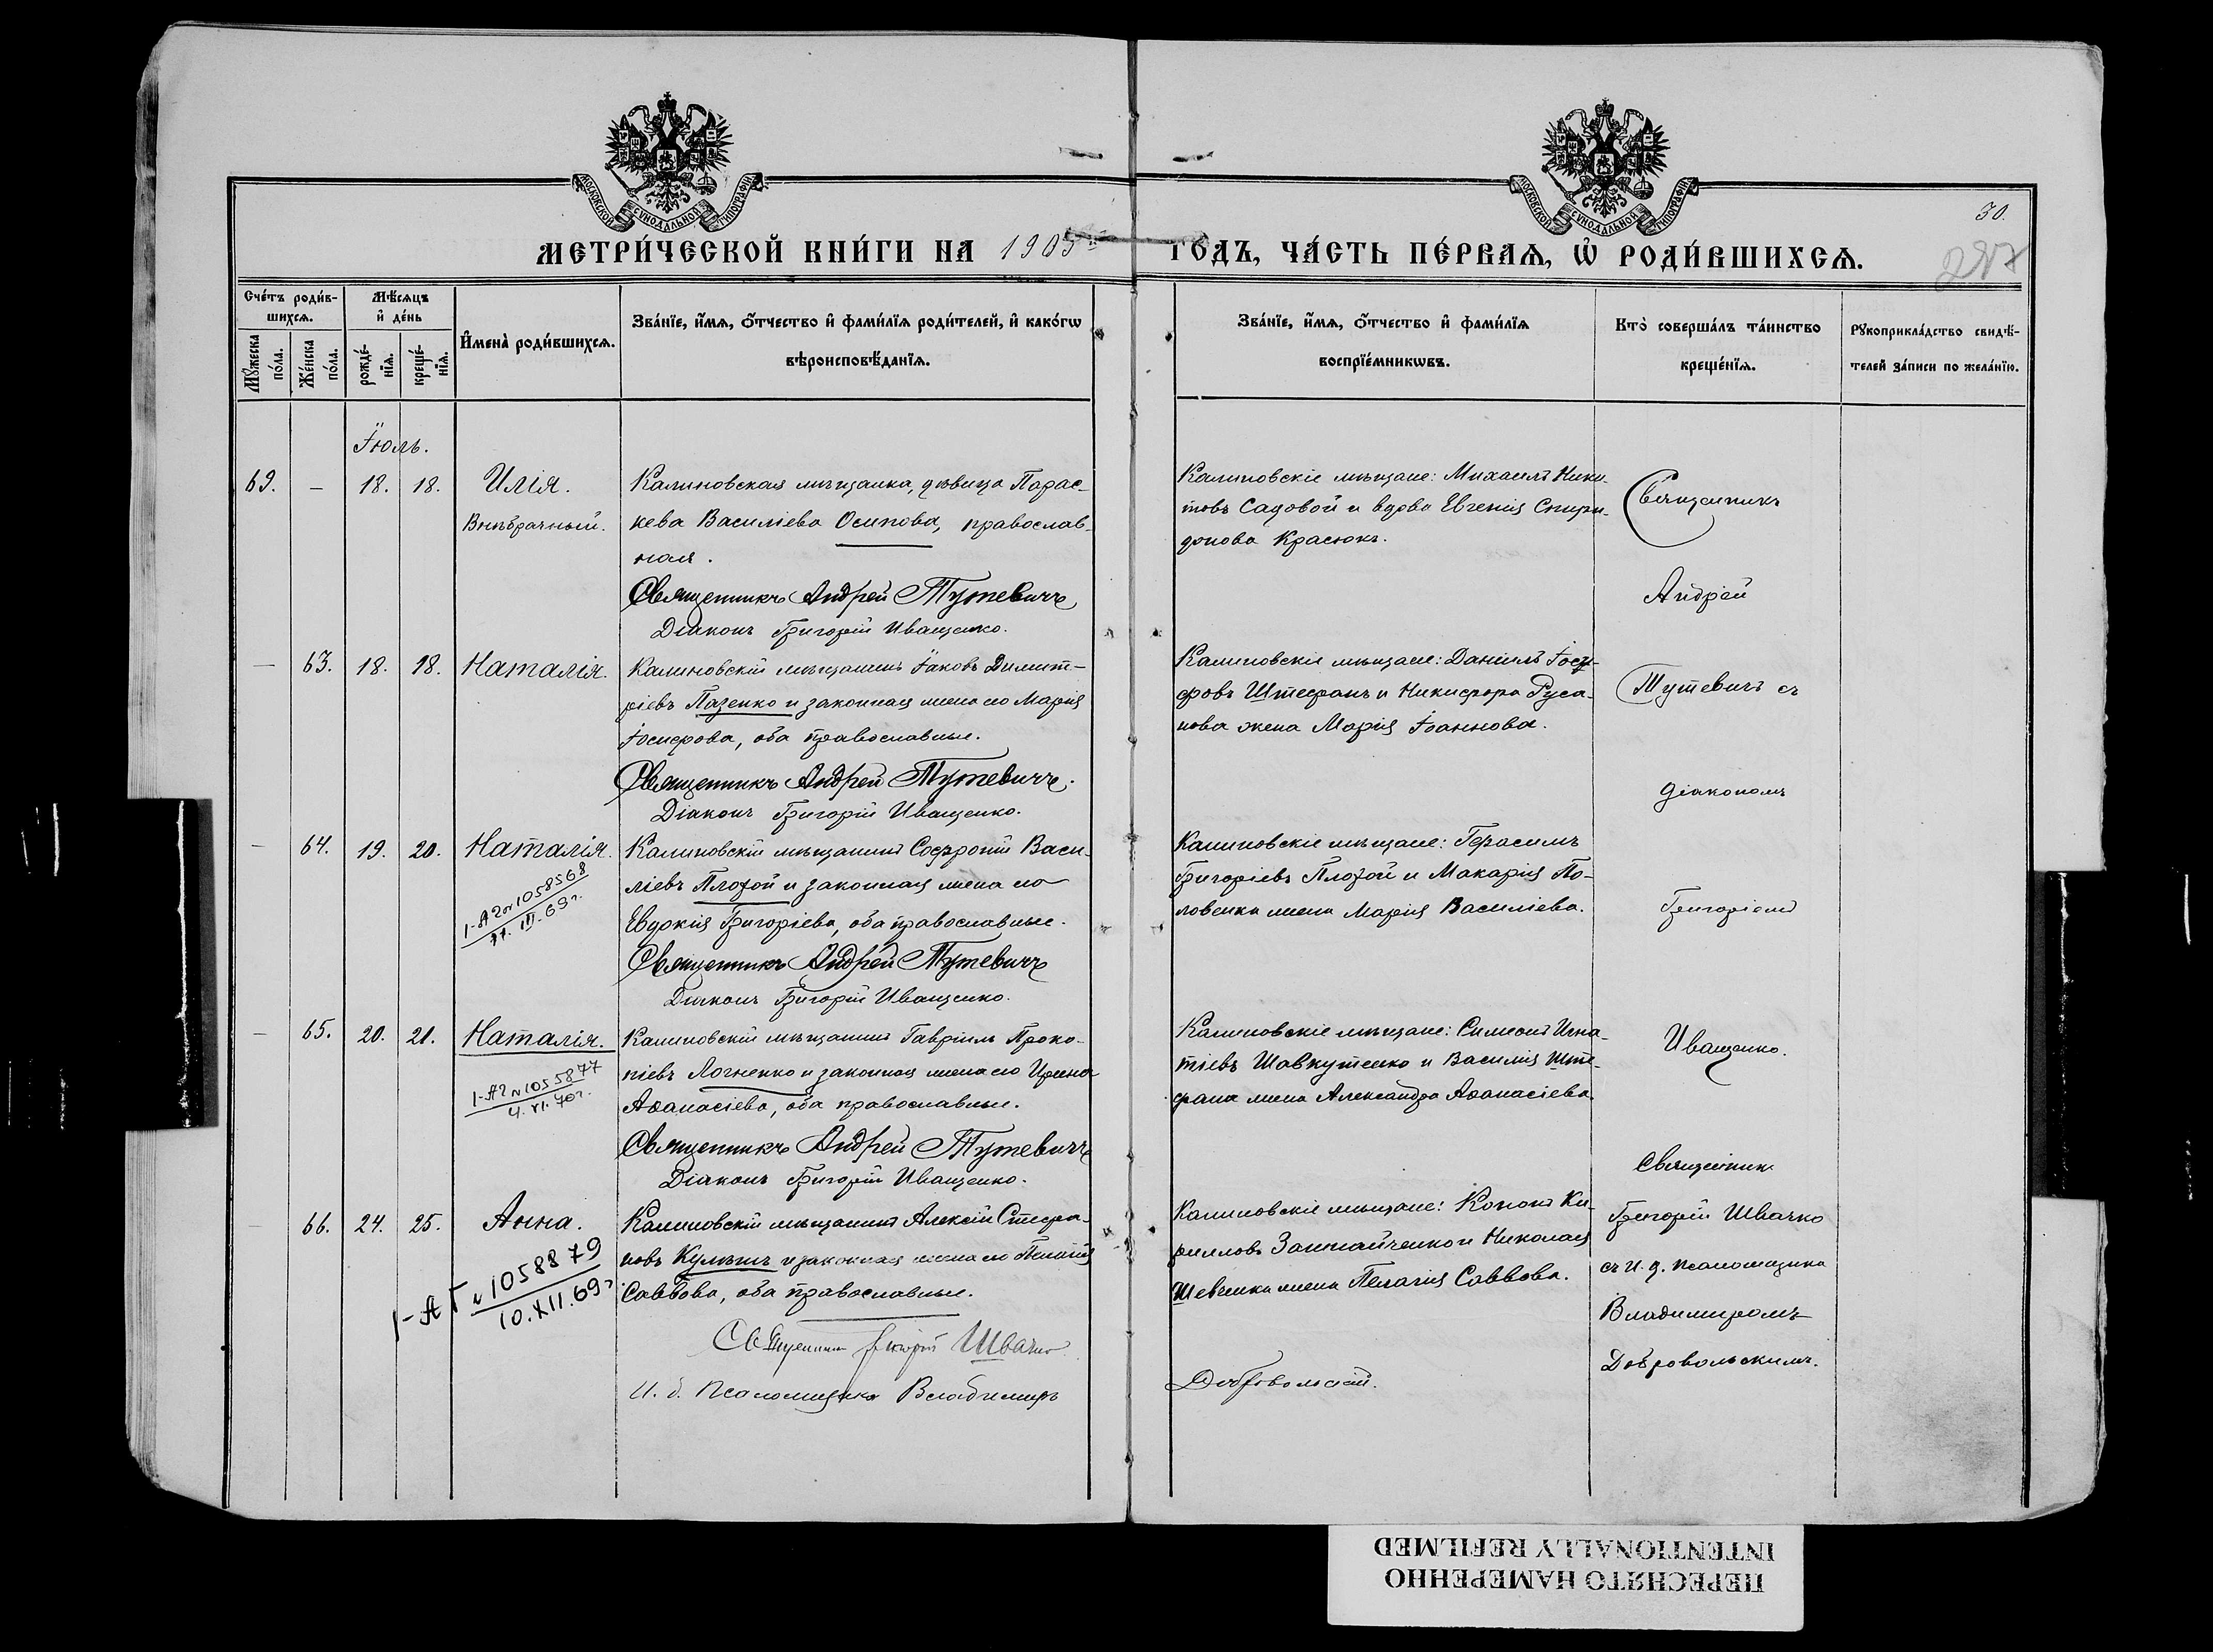 МОСКОВСКОЙ СѴНОДАЛЬНОЙ ТИПОГРАФІИ
МОСКОВСКОЙ СѴНОДАЛЬНОЙ ТИПОГРАФІИ
30.
МЕТРИ́ЧЕСКОЙ КНИ́ГИ НА 1905 ГОДЪ, ЧА́СТЬ ПЕ́РВАѦ, Ѡ҆ РОДИ́ВШИХСѦ.
Сче́тъ роди́в-
шихсѧ.
Мꙋ́жеска по́ла.
Же́нска по́ла.
Мѣ́сѧцъ
и҆ де́нь
рожде́-
нїѧ.
креще́-
нїѧ.
И҆мена̀ роди́вшихсѧ.
Зва́нїе, и҆́мѧ, ѻ҆́тчество и҆ фами́лїѧ роди́телей, и҆ како́гѡ
вѣроисповѣ́данїѧ.
Зва́нїе, и҆́мѧ, ѻ҆́тчество и҆ фами́лїѧ
воспрїе́мникѡвъ.
Кто̀ соверша́лъ та́инство
креще́нїѧ.
Рꙋкоприкла́дство свидѣ́-
телей за́писи по жела́нїю.
Іюль.
69. – 18. 18. Илія.
Внѣбрачный.
Калиновская мѣщанка, дѣвица Парас-
кева Василіева Осипова, православ-
ная.
Священникъ Андрей Тутевичъ
Діаконъ Григорій Иващенко.
Калиновскіе мѣщане: Михаилъ Ники-
товъ Садовой и вдова Евгенія Спири-
донова Красюкъ.
Священникъ
Андрей
Тутевичъ съ
діакономъ
Григоріемъ
Иващенко.
– 63. 18. 18. Наталія.
Калиновскій мѣщанинъ Іаковъ Димит-
ріевъ Пазенко и законная жена его Марія
Іосифова, оба православные.
Священникъ Андрей Тутевичъ.
Діаконъ Григорій Иващенко.
Калиновскіе мѣщане: Даніилъ Іоси-
фовъ Штефанъ и Никифора Руса-
нова жена Марія Іоаннова.
– 64. 19. 20. Наталія.
1-А2 № 1058568
11.III.69г.
Калиновскій мѣщанинъ Софроній Васи-
ліевъ Плохой и законная жена его
Евдокія Григоріева, оба православные.
Священникъ Андрей Тутевичъ
Діаконъ Григорій Иващенко.
Калиновскіе мѣщане: Герасимъ
Григоріевъ Плохой и Макарія По-
ловенка жена Марія Василіева.
– 65. 20. 21. Наталія.
1-А2 № 1055877
4.VI.70г.
Калиновскій мѣщанинъ Гавріилъ Проко-
піевъ Логненко и законная жена его Ирина
Аѳанасіева, оба православные.
Священникъ Андрей Тутевичъ
Діаконъ Григорій Иващенко.
Калиновскіе мѣщане: Симеонъ Игна-
тіевъ Шавкутенко и Василія Ште-
фана жена Александра Аѳанасіева.
– 66. 24. 25. Анна.
1-АГ № 1058879
10.XII.69г
Калиновскій мѣщанинъ Алексій Стефа-
новъ Кульшъ и законная жена его Пелагія
Саввова, оба православные.
Священник Григорій Швачко
И. д. Псаломщика Владимиръ
Добровольскій.
Калиновскіе мѣщане: Кононъ Ки-
рилловъ Заштайченко и Николая
Шевченка жена Пелагія Саввова.
Священник
Григорій Швачко
съ И. д. псаломщика
Владимиромъ
Добровольскимъ.
ПЕРЕСНЯТО НАМЕРЕННО
INTENTIONALLY REFILMED